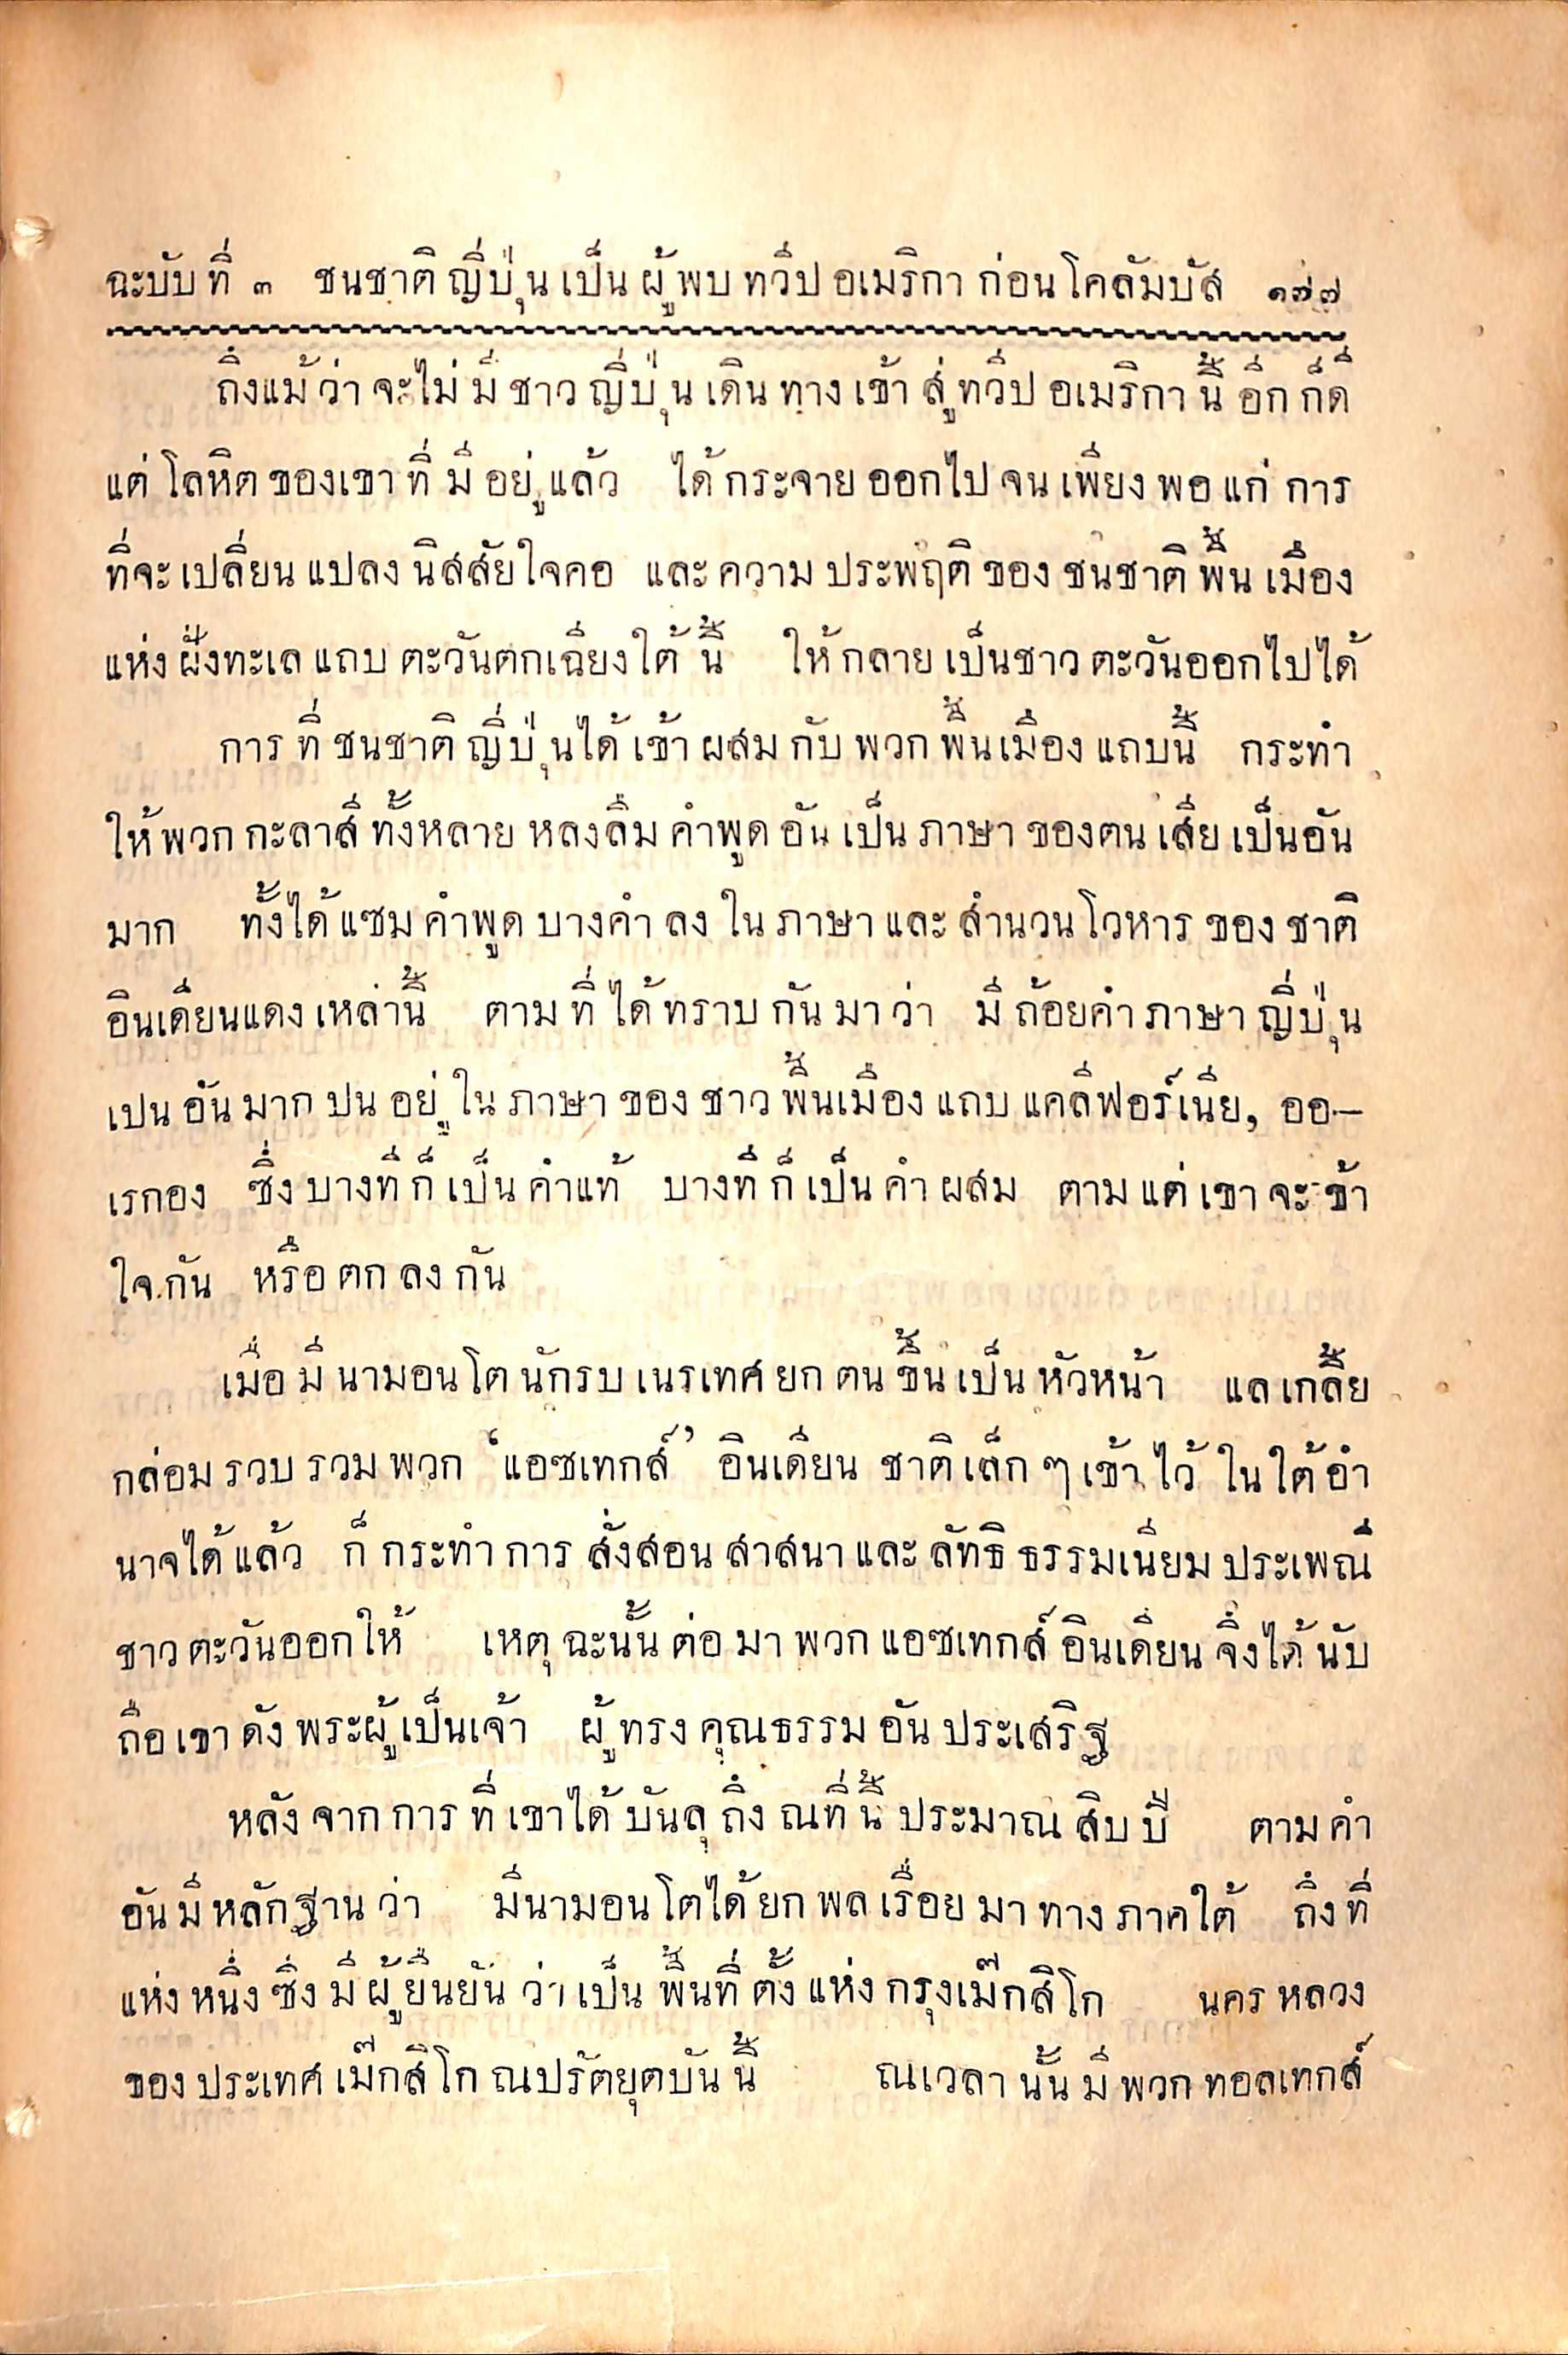 ฉะบับที่ ๓ ชนชาติญี่ปุ่นเป็นผู้พบทวีปอเมริกาก่อนโคลัมบัส ๑๗๗
ถึงแม้ว่าจะไม่มีชาวญี่ปุ่นเดินทางเข้าสู่ทวีปอเมริกานี้อีกก็ดี
แต่โลหิตของเขาที่มีอยู่แล้ว ได้กระจายออกไปจนเพียงพอแก่การ
ที่จะเปลี่ยนแปลงนิสสัยใจคอ และความประพฤติของชนชาติพื้นเมือง
แห่งฝั่งทะเลแถบตะวันตกเฉียงใต้นี้ ให้กลายเป็นชาวตะวันออกไปได้
การที่ชนชาติญี่ปุ่นได้เข้าผสมกับพวกพื้นเมืองแถบนี้ กระทำ
ให้พวกกะลาสีทั้งหลายหลงลืมคำพูดอันเป็นภาษาของตนเสียเป็นอัน
มาก ทั้งได้แซมคำพูดบางคำลงในภาษาและสำนวนโวหารของชาติ
อินเดียนแดงเหล่านี้ ตามที่ได้ทราบกันมาว่า มีถ้อยคำภาษาญี่ปุ่น
เปนอันมากปนอยู่ในภาษาของชาวพื้นเมืองแถบแคลิฟอร์เนีย, ออ—
เรกอง ซึ่งบางทีก็เป็นคำแท้ บางทีก็เป็นคำผสม ตามแต่เขาจะข้า
ใจกัน หรือตกลงกัน
เมื่อมีนามอนโตนักรบเนรเทศยกตนขึ้นเป็นหัวหน้า แลเกลี้ย
กล่อมรวบรวมพวก ‘แอซเทกส์’ อินเดียน ชาติเล็กๆเข้าไว้ในใต้อำ
นาจได้แล้ว ก็กระทำการสั่งสอนสาสนาและลัทธิธรรมเนียมประเพณี
ชาวตะวันออกให้ เหตุฉะนั้นต่อมาพวกแอซเทกส์อินเดียนจึงได้นับ
ถือเขาดังพระผู้เป็นเจ้า ผู้ทรงคุณธรรมอันประเสริฐ
หลังจากการที่เขาได้บันลุถึงณที่นี้ประมาณสิบปี ตามคำ
อันมีหลักฐานว่า มีนามอนโตได้ยกพลเรื่อยมาทางภาคใต้ ถึงที่
แห่งหนึ่งซึ่งมีผู้ยืนยันว่าเป็นพื้นที่ตั้งแห่งกรุงเม๊กสิโก นครหลวง
ของประเทศเม๊กสิโกณปรัตยุตบันนี้ ณเวลานั้นมีพวกทอลเทกส์